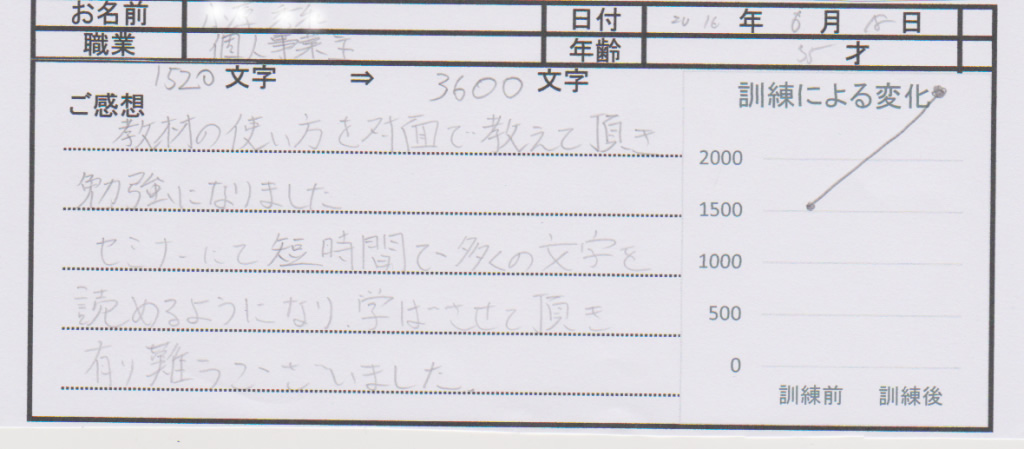 お名前 日付 2016年6月18日
職業 個人事業主 年齢 35才
1520文字 ⇒ 3600文字
ご感想
教材の使い方を対面で教えて頂き
勉強になりました
セミナーにて短時間で多くの文字を
読めるようになり、学ばさせて頂き
有り難うございました。
訓練による変化
2000
1500
1000
500
0
訓練前 訓練後